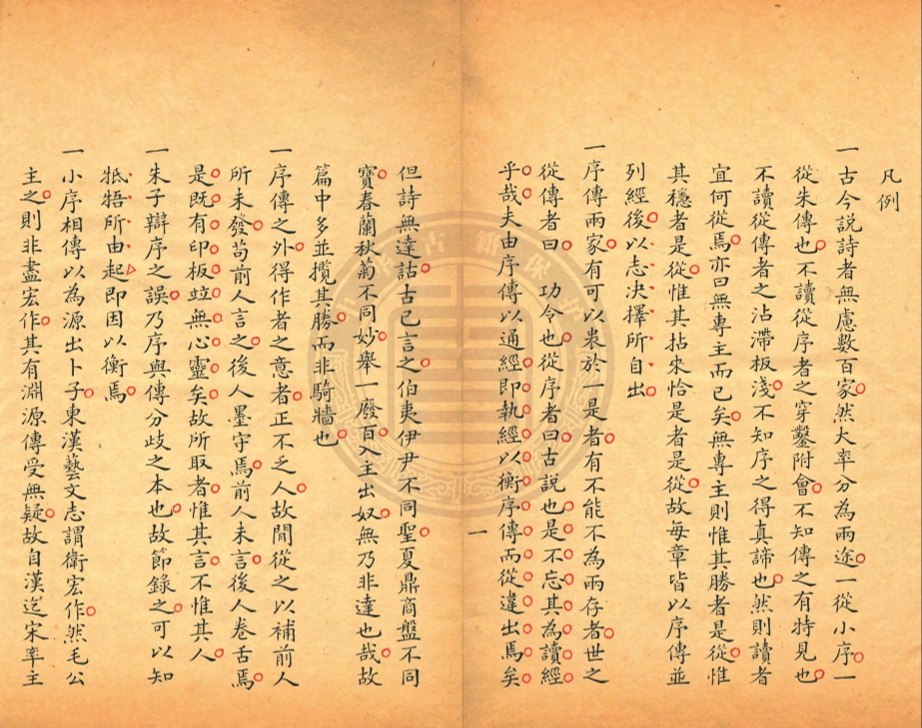 凡例
一古今説詩者無慮數百家然大率分為兩途一從小序一
從朱傳也不讀從序者之穿鑿附會不知傳之有特見也
不讀從傳者之沾滯板淺不知序之得真諦也然則讀者
宜何從焉亦曰無專主而已矣無專主則惟其勝者是從惟
其穩者是從惟其拈來恰是者是從故每章皆以序傳並
列經後以志决擇所自出
一序傳兩家有可以衷於一是者有不能不為兩存者世之
從傳者曰功令也從序者曰古説也是不忘其為讀經
乎哉夫由序傳以通經即執經以衡序傳而從違出焉矣
一
但詩無達詁古已言之伯夷伊尹不同聖夏鼎商盤不同
寶春蘭秋菊不同妙舉一廢百入主出奴無乃非達也哉故
篇中多並攬其勝而非騎牆也
一序傳之外得作者之意者正不乏人故間從之以補前人
所未發苟前人言之後人墨守焉前人未言後人卷舌焉
是既有印板竝無心靈矣故所取者惟其言不惟其人
一朱子辯序之誤乃序與傳分歧之本也故節錄之可以知
牴牾所由起即因以衡焉
一小序相傳以為源出卜子東漢藝文志謂衛宏作然毛公
主之則非盡宏作其有淵源傳受無疑故自漢迄宋率主